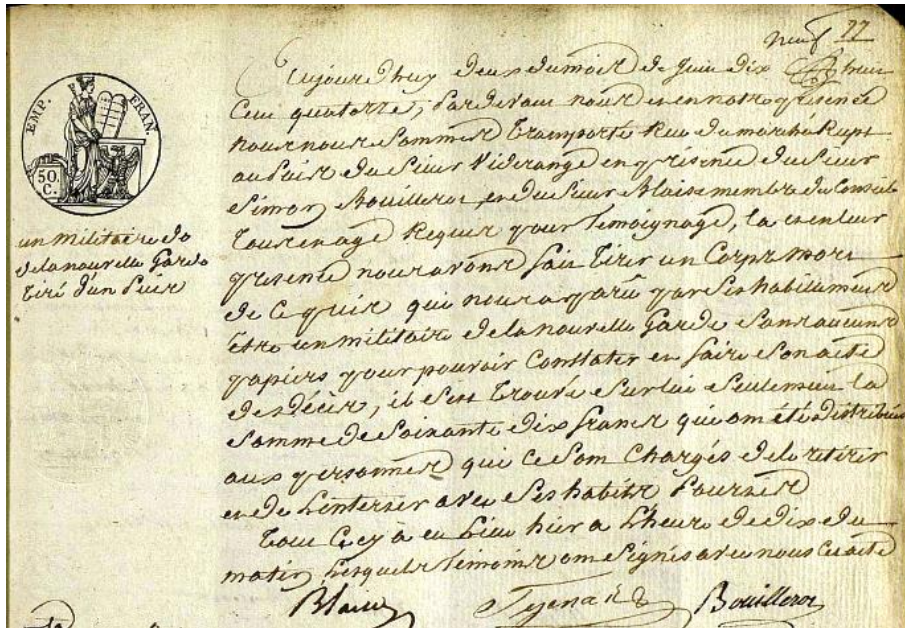 neuf 77
EMP. FRAN
50.
C.
un militaire de
dela nouvelle Garde
tiré d'un Puis
Aujourd'huy deux du mois de Juin dix huit
Cent quatorze, pardevant nous et en notre présence
nous nous sommes transporté Rue du marché Rupt
au Puis du Sieur Viderange en présence du Sieur
Simon Bouilleros, et du Sieur Blaise membre du Conseil
tous en age Requis pour témoignage, la en leur
présence nous avons fait tirer un Corps mort
de ce puis qui nous a parû par ses habillements
être un militaire de la nouvelle Garde Sans aucuns
papiers pour pouvoir Constater et faire Son acte
de Décès, il s'est trouvé Sur lui Seulement la
Somme de Soixante dix francs qui ont été distribués
aux personnes qui ce Sont Chargés de le retirer
et de L'enterrer avec Ses habits
tout Cecy a eu Lieu hier a L'heure de dix du
matin, Lesquels témoins ont Signés avec nous Ce acte
Bouilleros